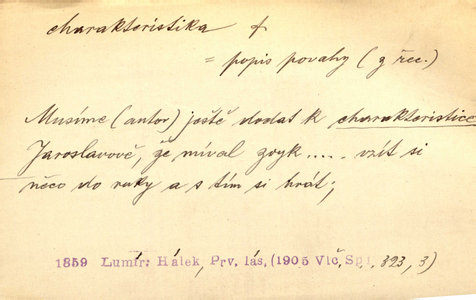 charakteristika f
= popis povahy (z řec.)
Musíme (autor) ještě dodat k charakteristice
Jaroslavově, že míval zvyk ..... vzít si
něco do ruky a s tím si hrát;
1859 Lumír: Hálek, Prv. lás, (1905 Vlč, Sp I, 323, 3)